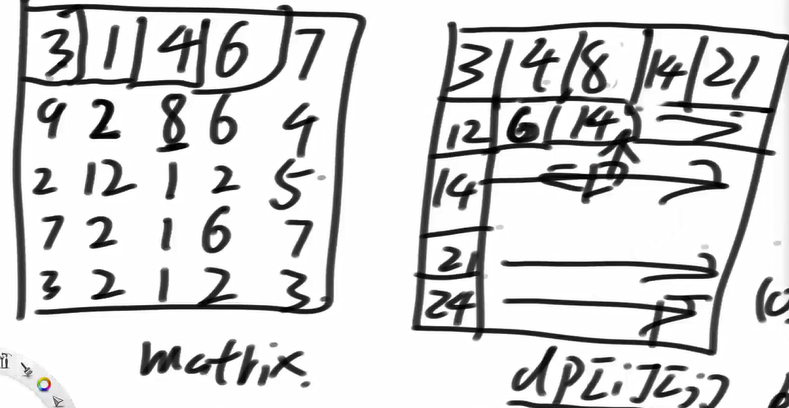 3 1 4 6 7
9 2 8 6 4
2 12 1 2 5
7 2 1 6 7
3 2 1 2 3
matrix
3 4 8 14 21
12 6 14
14
21
24
dp[i][j]